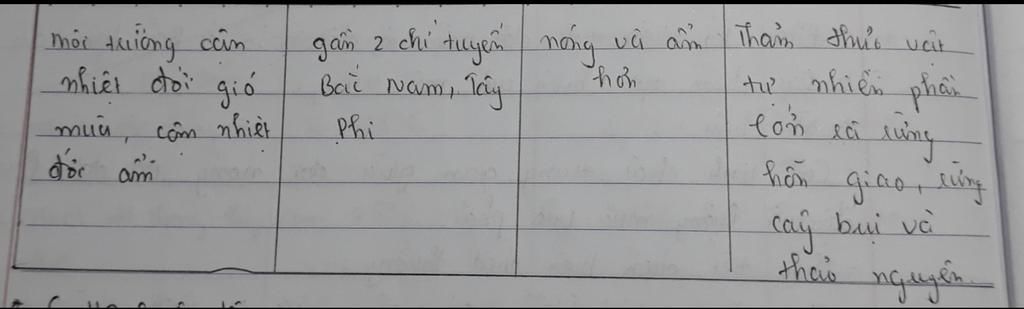 môi trường cận
nhiệt đới gió
mùa, cận nhiệt
đới ẩm
gần 2 chí tuyến
Bắc Nam, Tây
Phi
nóng và ẩm
hơn
Thảm thực vật
tự nhiên phần
lớn là rừng
hỗn giao, rừng
cây bụi và
thảo nguyên